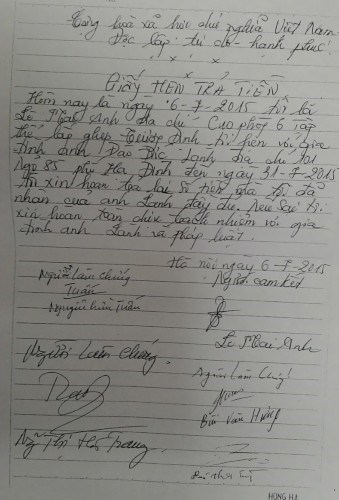 Cộng hoà xã hội chủ nghĩa Việt Nam
Độc lập tự do - hạnh phúc!
x x x
GIẤY HẸN TRẢ TIỀN
Hôm nay là ngày 6-7-2015 tôi là
Lê Mai Anh địa chỉ Cụ phòng 6 tập
thể lắp ghép Trương Định tôi hẹn với gia
đình anh Đào Bắc Lanh địa chỉ 101
Ngõ 85 phố Hạ Đình đến ngày 31-7-2015
tôi xin hoàn tạo lại số tiền mà tôi đã
nhận của anh Lanh đầy đủ. Nếu sai tôi
xin hoàn toàn chịu trách nhiệm với gia
đình anh Lanh và pháp luật.
Hà nội ngày 6-7-2015
Người làm chứng Người cam kết
Tuấn
Nguyễn Tuấn
Lê Mai Anh
Người làm chứng
Người làm chứng
Bùi Văn Hùng
Trang
HONG HA